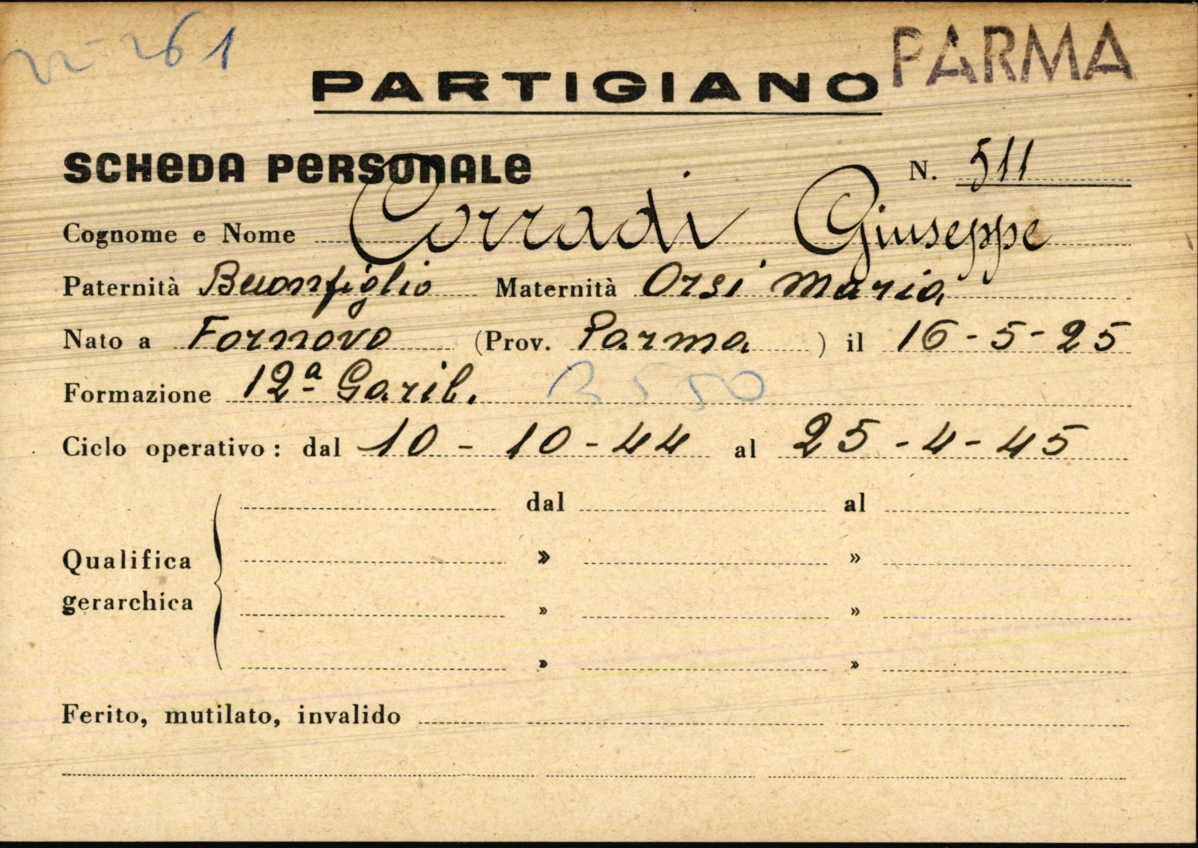 22-261
PARMA
PARTIGIANO
SCHEDA PERSONALE N. 511
Cognome e Nome Corradi Giuseppe
Paternità Buonfiglio Maternità Orsi Maria
Nato a Fornovo (Prov. Parma) il 16-5-25
Formazione 12ª Garib. 3550
Ciclo operativo: dal 10-10-44 al 25-4-45
dal al
Qualifica » »
gerarchica » »
» »
Ferito, mutilato, invalido